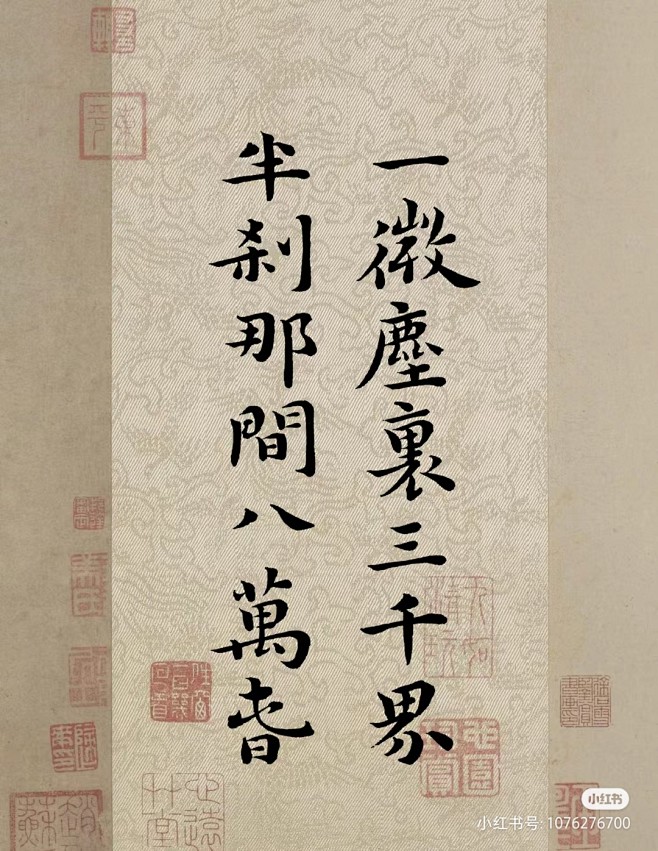 一微塵裏三千界
半剎那間八萬春
小红书
小红书号: 1076276700